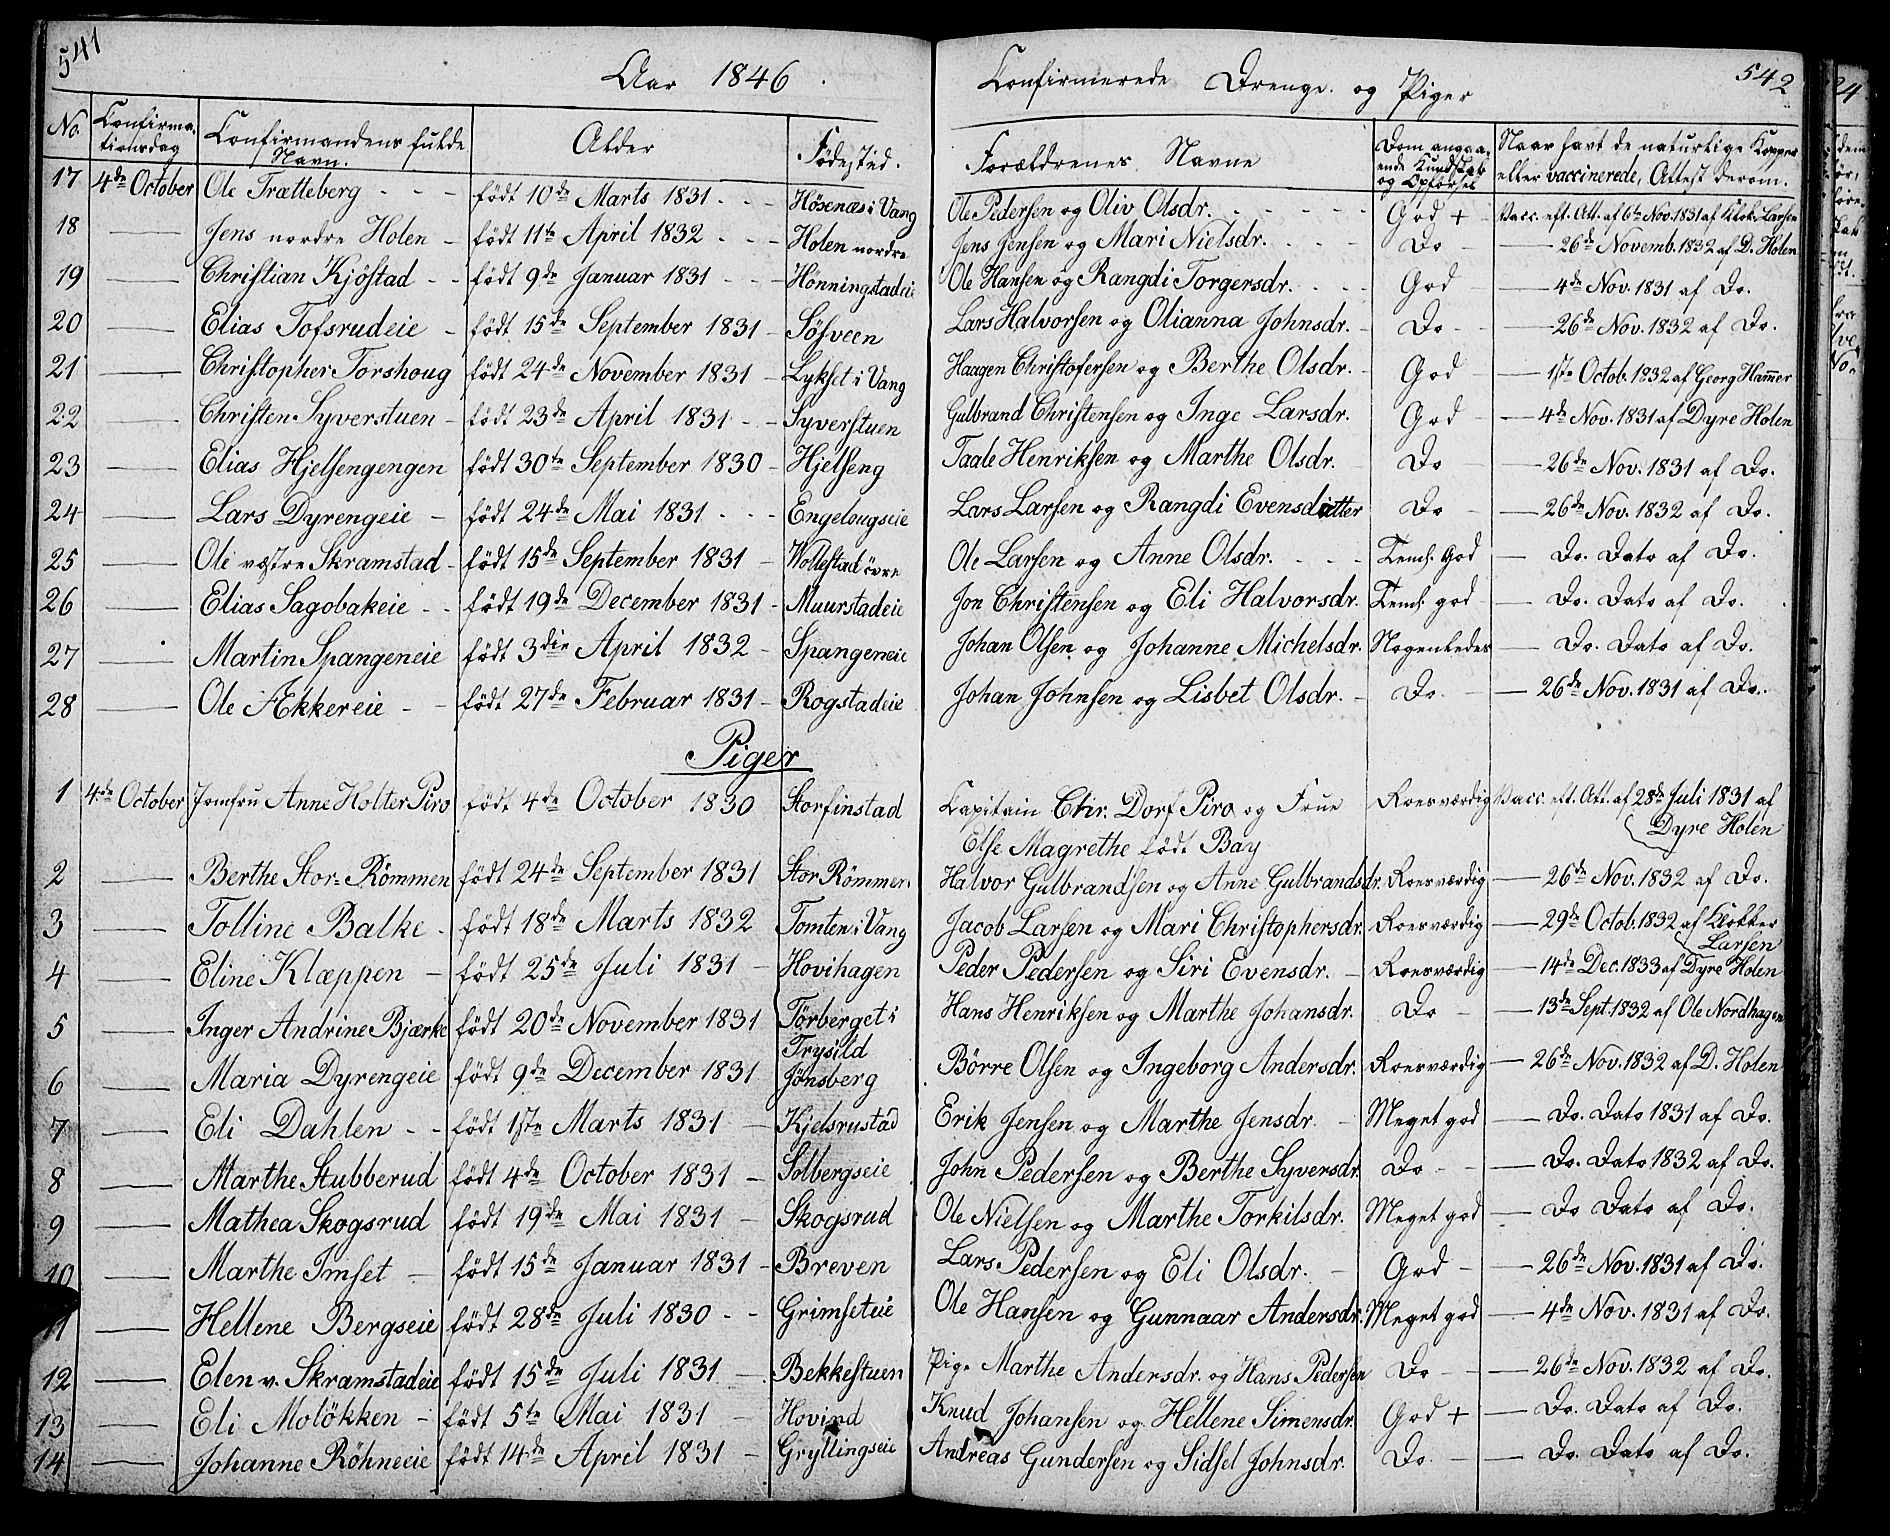 541
Aar 1846.
Confirmerede Drenge og Piger
542
No. | Confirma-tionsdag | Confirmandens fulde Navn. | Alder | Fødested. | Forældrenes Navne | Dom angaa-ende Kundskab og Opførsel | Naar havt de naturlige Kopper eller vaccinerede, Attest derom.
17 4de October Ole Trætteberg - - - født 10de Marts 1831 - - - Høsenæs i Vang Ole Pedersen og Oliv Olsdr. - - - - God + Vacc. eft. Att. af 6te Nov. 1831 af Klok. Larsen
18 — Jens nordre Holen - født 11te April 1832 - - - Holen nordre Jens Jensen og Mari Nielsdr. - - - Do - — 26de Novemb. 1832 af D. Holen
19 — Christian Kjöstad - - født 9de Januar 1831 - - - Hönningstadeie Ole Hansen og Rangdi Torgersdr. - - - God — 4de Nov. 1831 af Do.
20 — Elias Tofsrudeie - født 15de September 1831 - Söfveen Lars Halvorsen og Olianna Johnsdr. - Do - — 26de Nov. 1832 af Do.
21 — Christopher Torshoug født 24de November 1831 - Lykset i Vang Haagen Christofersen og Berthe Olsdr. - God - — 1ste Octob. 1832 af Georg Hammer
22 — Christen Syverstuen - født 23de April 1831 - - Syverstuen Gulbrand Christensen og Inge Larsdr. God - — 4de Nov. 1831 af Dyre Holen
23 — Elias Hjelsengengen født 30te September 1830 - Hjelseng Taale Henriksen og Marthe Olsdr. Do - — 26de Nov. 1831 af Do.
24 — Lars Dyrengeie - født 24de Mai 1831 - - - Engelougseie Lars Larsen og Rangdi Evensdatter Do - — 26de Nov. 1832 af Do.
25 — Ole væstre Skramstad - født 15de September 1831 - Wollestad övre Ole Larsen og Anne Olsdr. - - - Teml. God — Do. Dato af Do.
26 — Elias Sagobakeie - - født 19de December 1831 - Muurstadeie Jon Christensen og Eli Halvorsdr. Teml. god — Do. Dato af Do.
27 — Martin Spangeneie født 3die April 1832 - Spangeneie Johan Olsen og Johanne Michelsdr. Nogenledes — Do. Dato af Do.
28 — Ole Akkereie - - født 27de Februar 1831 - Rogstadeie Johan Johnsen og Lisbet Olsdr. - Do. - — 26de Nov. 1831 af Do.
Piger
1 4de October Jomfru Anne Holter Piro født 4de October 1830 Storfinstad Kapitain Chr. Dorf Piro og Frue Else Magrethe født Bay Roesværdig Vacc. eft. Att. af 28de Juli 1831 af Dyre Holen
2 — Berthe Stor-Römmen født 24de September 1831 Stor Römmen Halvor Gulbrandsen og Anne Gulbrandsdr. Roesværdig — 26de Nov. 1832 af Do.
3 — Tolline Balke - født 18de Marts 1832 Tomten i Vang Jacob Larsen og Mari Christophersdr. Roesværdig — 29de Octob. 1832 af Klokker Larsen
4 — Eline Klæppen - født 25de Juli 1831 - Hovihagen Peder Pedersen og Siri Evensdr. - Roesværdig — 14de Dec. 1833 af Dyre Holen
5 — Inger Andrine Bjærke født 20de November 1831 Törberget i Trysild Hans Henriksen og Marthe Johansdr. Do - — 13de Sept. 1832 af Ole Nordhagen
6 — Maria Dyrengeie født 9de December 1831 Jønsberg Börre Olsen og Ingeborg Andersdr. Roesværdig — 26de Nov. 1832 af D. Holen
7 — Eli Dahlen - - født 1ste Marts 1831 - Kjelsrustad Erik Jensen og Marthe Jensdr. - Meget god — Do. Dato 1831 af Do.
8 — Marthe Stubberud født 4de October 1831 - Solbergseie John Pedersen og Berthe Syversdr. Do - — Do. Dato 1832 af Do.
9 — Mathea Skogsrud født 19de Mai 1831 - Skogsrud Ole Nielsen og Marthe Torkilsdr. Meget god — Do Dato af Do.
10 — Marthe Imset - født 15de Januar 1831 - Breven Lars Pedersen og Eli Olsdr. - God - — 26de Nov. 1831 af Do.
11 — Hellene Bergseie født 28de Juli 1830 - - Grimseteie Ole Hansen og Gunnaar Andersdr. Meget god — 4de Nov. 1831 af Do.
12 — Elen v. Skramstadeie født 15de Juli 1831 - Bekkestuen Pige Marthe Andersdr. og Hans Pedersen Do - — 26de Nov. 1832 af Do.
13 — Eli Molökken - født 5te Mai 1831 - Hovind Knud Johansen og Hellene Simensdr. God + — Do. Dato af Do.
14 — Johanne Röhneeie født 14de April 1831 - Gryllingseie Andreas Gundersen og Sidsel Johnsdr. Do. - — Do. Dato af Do.